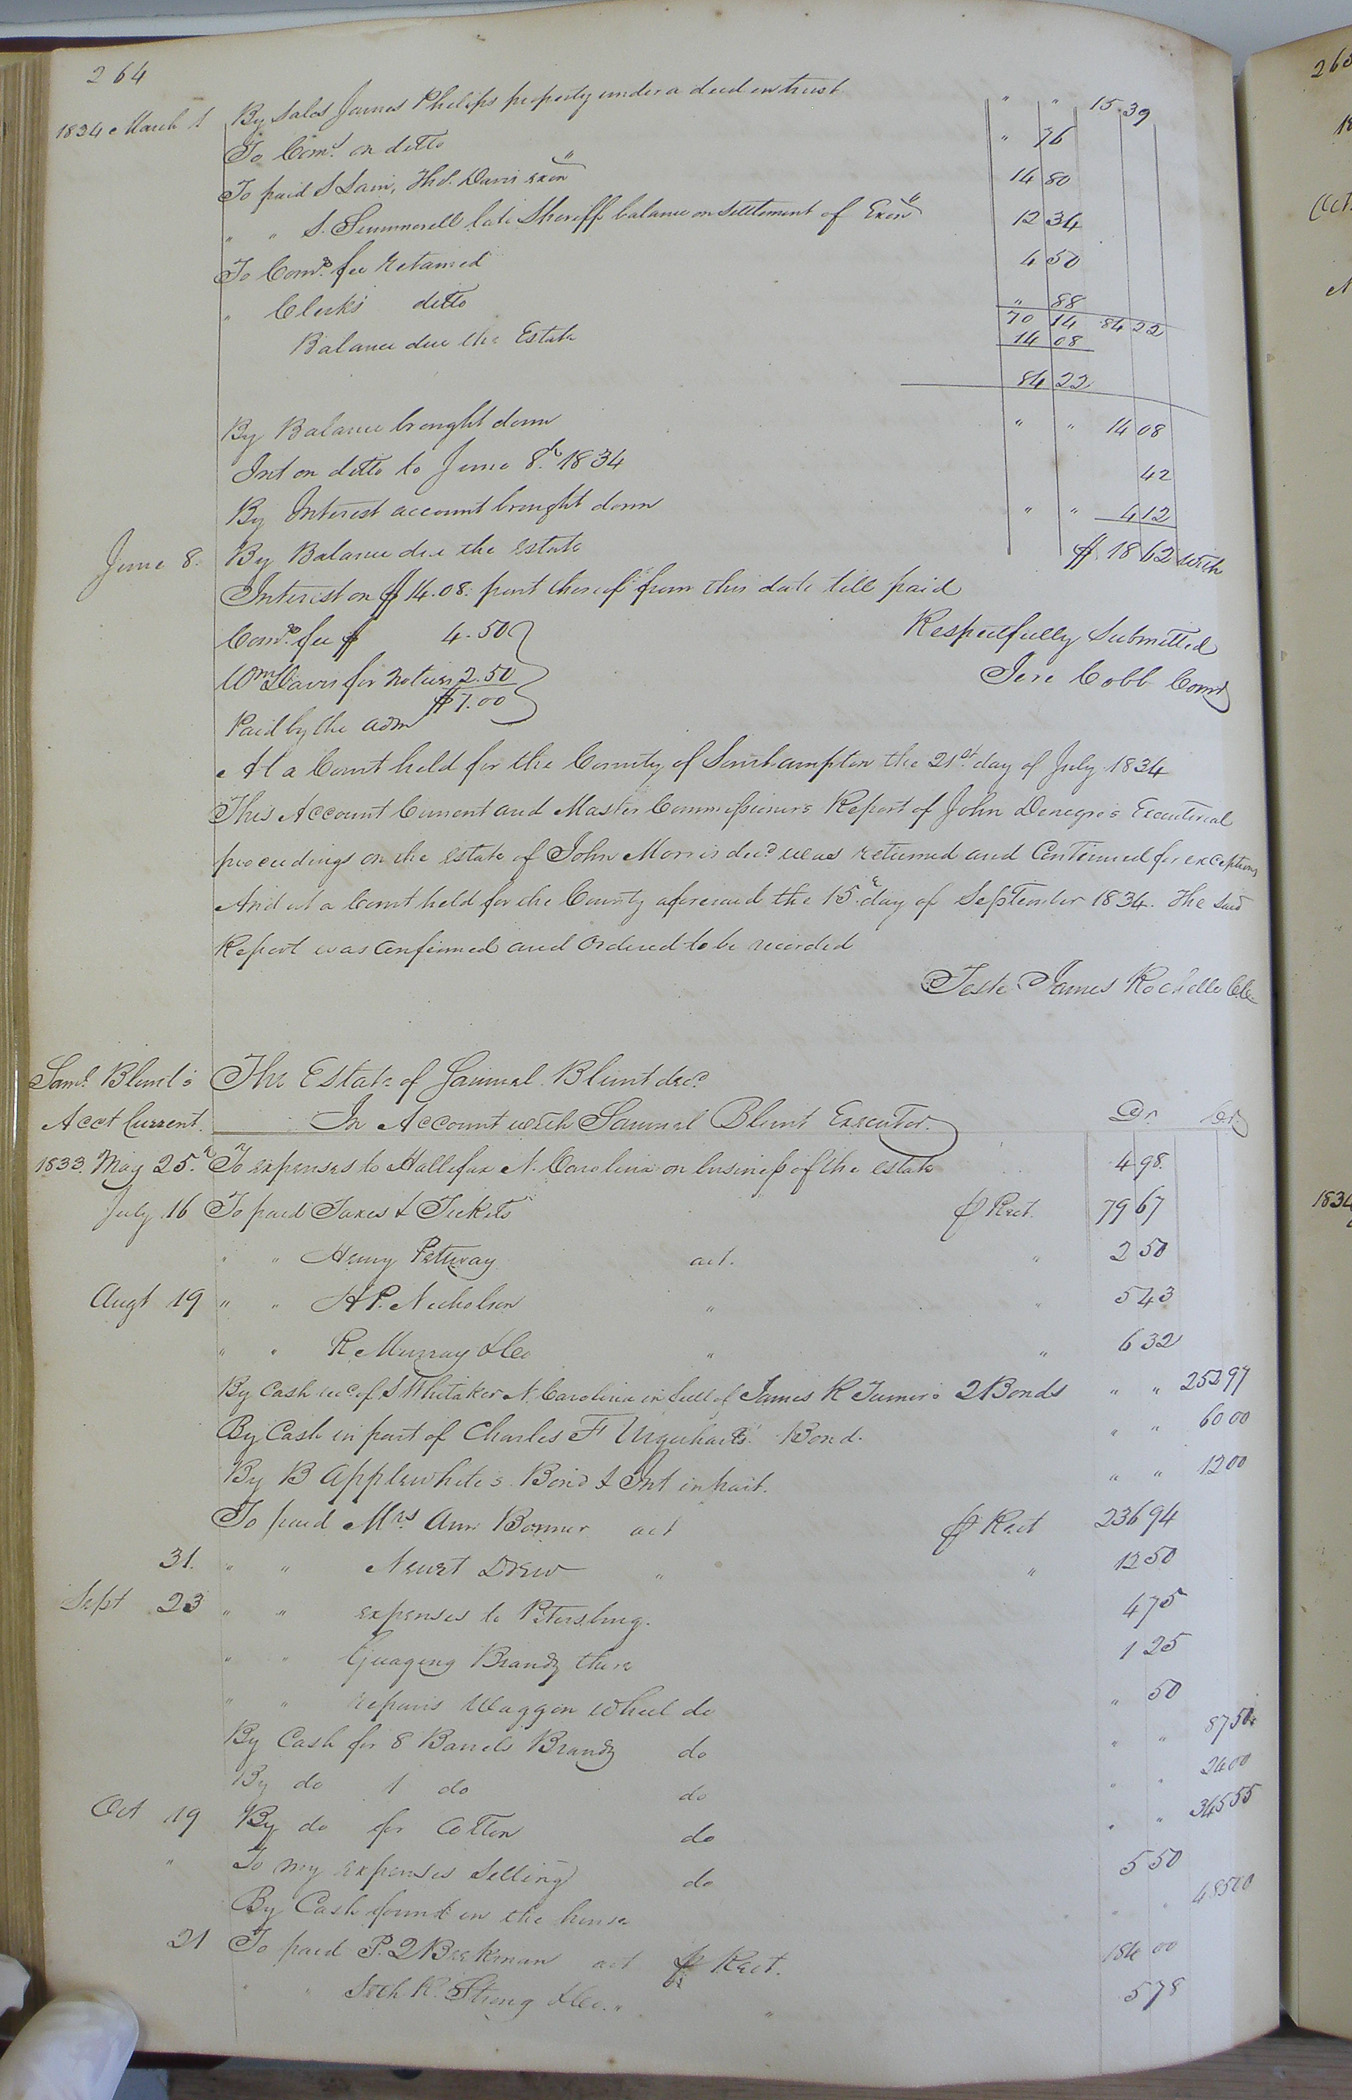 264
1834 March 1 By Sales James Philips property under a deed in trust " " 15.39
To Comr. on ditto " 76
To paid S Lain, Thos. Davis exon 14 80
" " S. Summerell late Sheriff balance on settlement of Exon 12 34
To Comrs. fee retained 4 50
" Clerks ditto " 88
70 14 84 22
Balance due the Estate 14 08
84 22
By Balance brought down " " 14 08
Int on ditto to June 8th 1834 42
By Interest account brought down " " 4 12
June 8. By Balance due the Estate $ 18 62 with
Interest on $14.08 part thereof from this date till paid
Comrs. fee $ 4.50
Respectfully Submitted
Wm Davis for notices 2.50
Jere Cobb Comr
$7.00
Paid by the adm
At a Court held for the County of Southampton the 21st day of July 1834
This Account Current and Master Commissioners Report of John Denegre's Executorial
proceedings on the estate of John Morris decd was returned and Continued for exceptions
And at a Court held for the County aforesaid the 15 day of September 1834. The said
Report was confirmed and ordered to be recorded
Teste James Rochelle Clk
Saml. Blunt's The Estate of Samuel Blunt decd
Acct Current. In Account with Samuel Blunt Executor. Dr. Cr.
1833. May 25. To expenses to Hallifax N. Carolina on business of the estate 4 98.
July 16 To paid Taxes & Tickets p Rect. 79 67
" " Henry Pettway act. " 2 50
Augt 19 " " H P. Nicholson " " 5 43
" " R Murray & Co " " 6 32
By Cash rec. of S Whitaker N. Carolina in full of James R Turner's 2 Bonds " " 252 97
By Cash in part of Charles F Urquhart's Bond. " " 60 00
By B Applewhite's Bond & Int in part. " " 12 00
To paid Mrs Ann Bonner act p Rect 236 94
31. " " Newit Drew " " 12 50
Sept 23 " " expenses to Petersburg. 4 75
" " Guaging Brandy there 1 25
" " repairs Waggon wheel do " 50
By Cash for 8 Barrels Brandy do " " 87 50
By do 1 do do " " 24 00
Oct 19 By do for Cotton do " " 345 55
" To my expenses selling do 5 50
By Cash found in the house " " 485 00
21 To paid P. Q Beekman act p Rect. 184 00
" " R. Strong & Co. " " 5 78